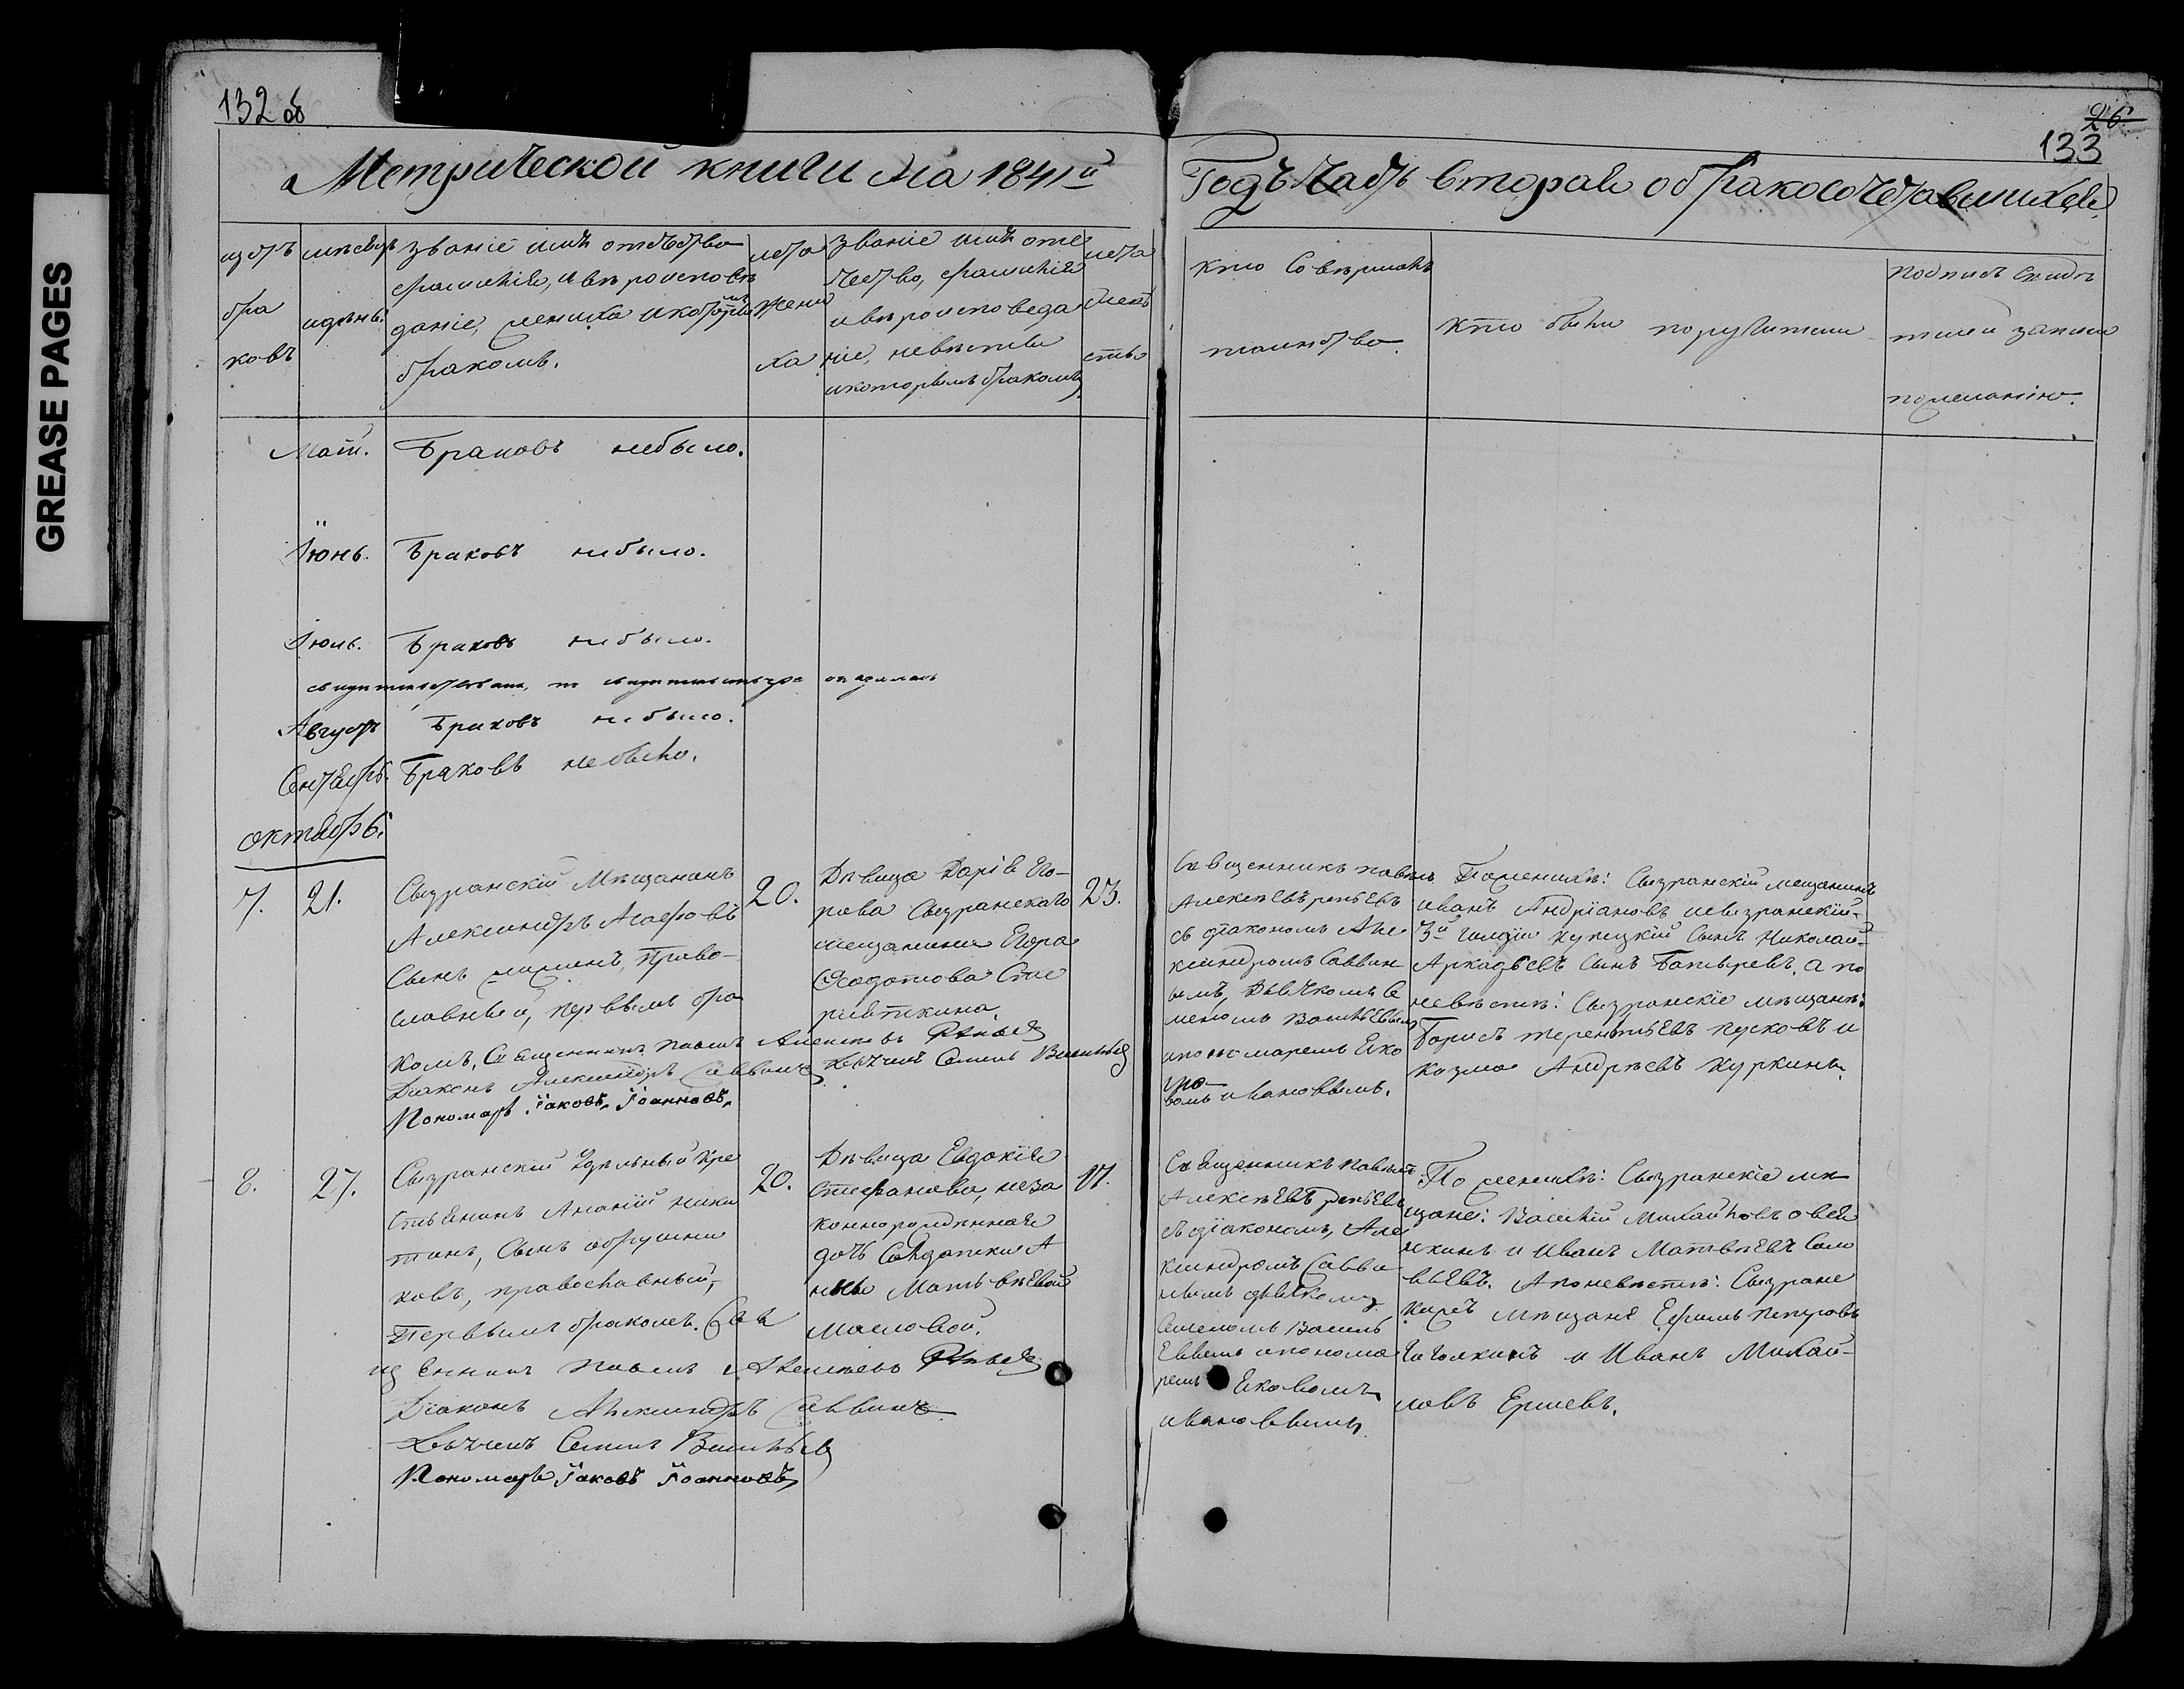 GREASE PAGES
132 об
26
133
Метрической книги на 1841й
Годъ Часть вторая о бракосочетавшихся
щетъ
бра
ковъ
мѣсяцъ
и день.
званіе имя отечество
фамилія, и вѣроисповѣ
даніе, жениха и которымъ
бракомъ.
лета
жени
ха
званіе имя оте
чество, фамилія
и вѣроисповеда
ніе, невѣсты
и которымъ бракомъ
лета
невѣ
сты
кто Совершалъ
таинство.
Кто были поручители
подпись Свидѣ
телей записи
по желанію.
Маій. Браковъ небыло.
Іюнь. Браковъ небыло.
Іюль. Браковъ небыло.
Августъ Браковъ небыло.
Сентябрь. Браковъ небыло.
октябрь.
7. 21.
Сызранскій Мѣщанинъ
Александръ Агафовъ
Сынъ право-
славный, первымъ бра
комъ. Священникъ Павелъ Алексѣевъ
Діаконъ Александръ Саввинъ
Дьячекъ Семенъ Васильевъ
Пономарь Іаковъ Іоанновъ
20.
Дѣвица Дарія Его-
рова Сызранскаго
мещанина Егора
Феодотова
23.
Священникъ Павелъ
Алексѣевъ
съ діакономъ Але
ксандромъ Саввин
ымъ, Дьячкомъ Се
меномъ Васильевымъ
и пономаремъ Яко
вомъ Ивановымъ.
По женихѣ: Сызранскій мещанинъ
иванъ Андріановъ и Сызранскій
3й гильдіи купецкій Сынъ Николай
Аркадьевъ Сынъ Батыревъ, а по
невѣстѣ: Сызранскіе мѣщане:
Борисъ терентьевъ пусковъ и
козма Андрѣевъ Куркинъ.
8. 27.
Сызранскій Удѣльный кре
стьянинъ Ананій ники
тинъ, Сынъ
ковъ, православный,
Первымъ бракомъ. Свя
щенникъ Павелъ Алексѣевъ
Діаконъ Александръ Саввинъ
Дьячекъ Семенъ Васильевъ
Пономарь Іаковъ Іоанновъ
20.
Дѣвица Евдокія
Стефанова, неза
коннорожденная
дочь Солдатки А
нны Матьвѣевой
Масловой.
17.
Священникъ Павелъ
Алексѣевъ
съ діакономъ, Але
ксандромъ Савви
нымъ дьячкомъ
Семеномъ Василь
евымъ и понома
ремъ Яковомъ
ивановымъ
По женихѣ: Сызранскіе мѣ
щане: Василій Михайловъ овся
нкинъ и Иванъ Матвѣевъ Соло
вьевъ. А по невѣстѣ: Сызранс
кіе мѣщане Ефимъ Петровъ
и Иванъ Михай-
ловъ Ершевъ.